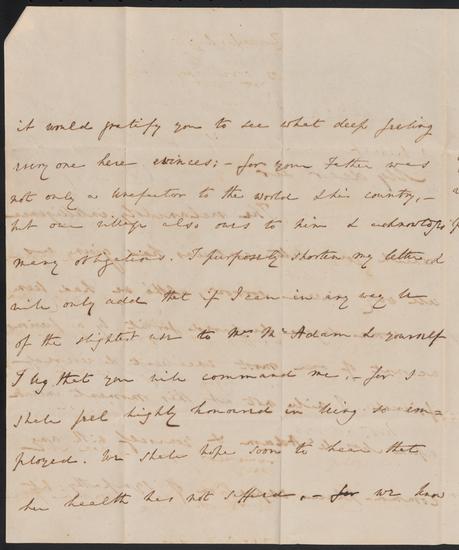 it would gratify you to see what deep feeling
every one here evinces; – for your Father was
not only a benefactor to the world & his country, –
but our village also owes to him & acknowledges
many obligations. I purposely shorten my letter &
will only add that if I can in any way be
of the slightest use to Mrs McAdam & yourself
I beg that you will command me, – for I
shall feel highly honoured in being so em=
ployed. We shall hope soon to hear that
her health has not suffered, – for we know